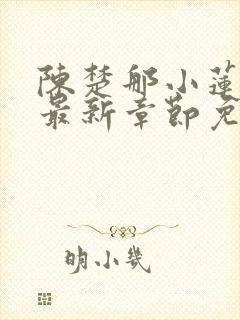 陳楚那小蓮
最新章節免
明小幾